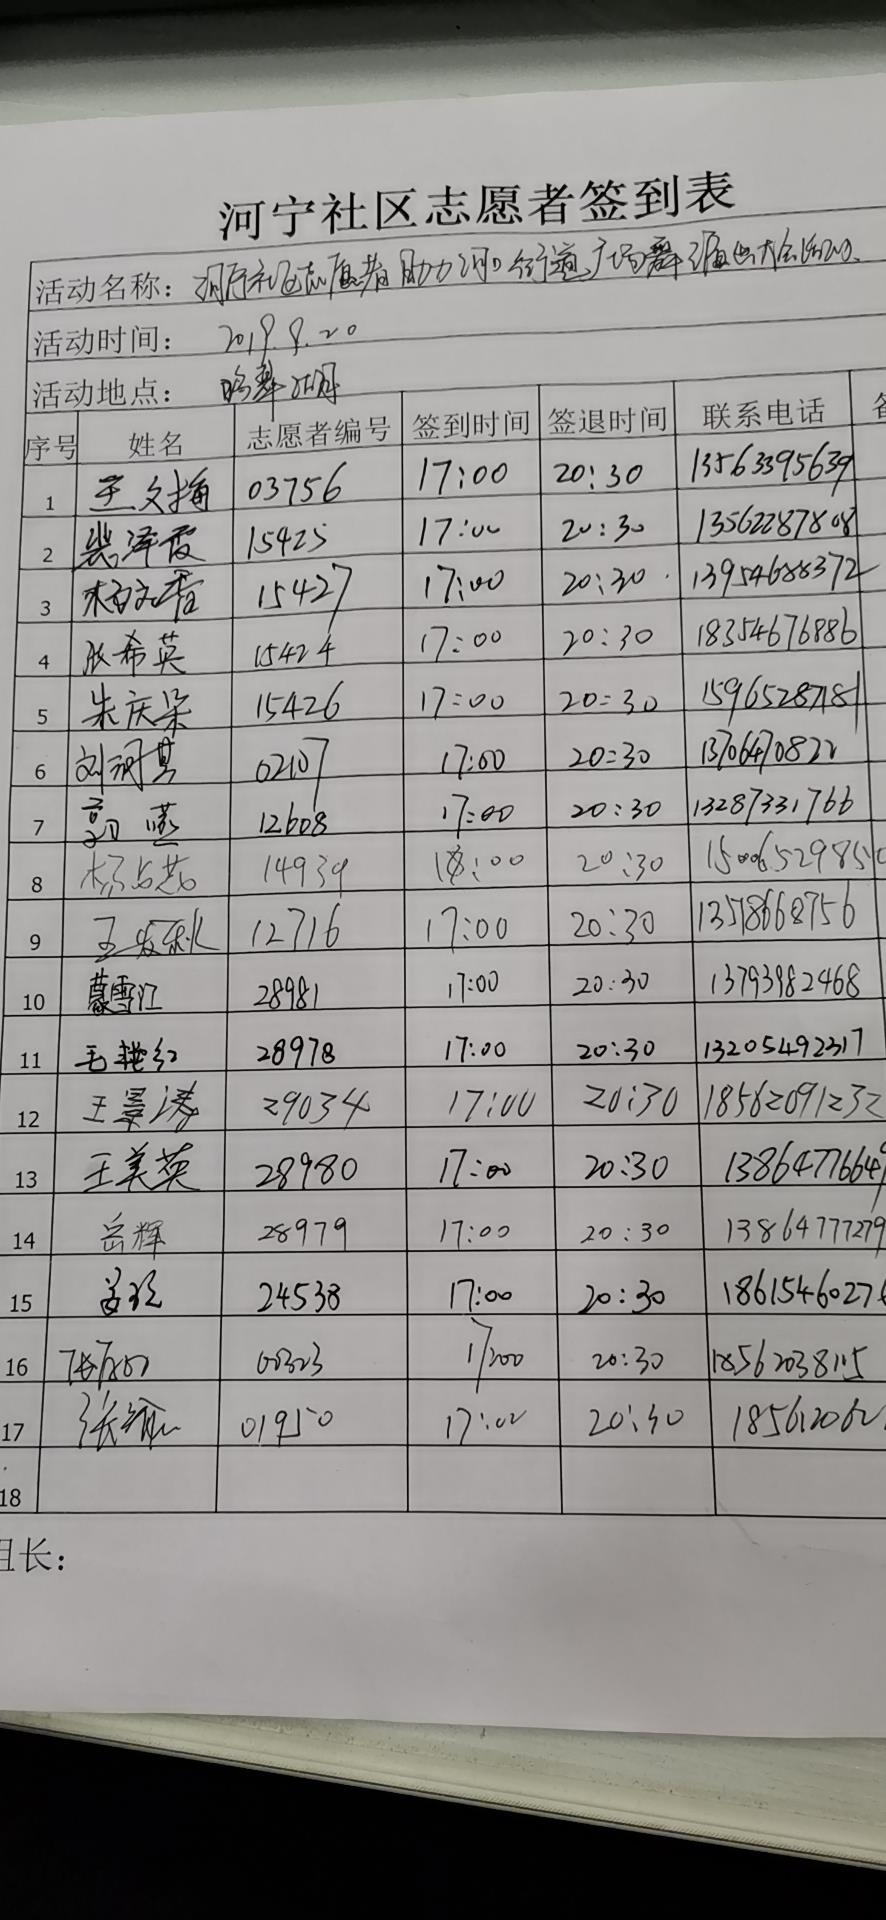 河宁社区志愿者签到表
活动名称：河宁社区志愿者助力河口街道广场舞演出大会活动
活动时间： 2019.9.20
活动地点： 鸣翠湖
序号 姓名 志愿者编号 签到时间 签退时间 联系电话 备
1 王文梅 03756 17:00 20:30 13563395639
2 裴泽霞 15425 17:00 20:30 13562287808
3 杨文香 15427 17:00 20:30 13954688372
4 张希英 15424 17:00 20:30 18354676886
5 朱庆朵 15426 17:00 20:30 15965287181
6 02107 17:00 20:30 13706470822
7 郭燕 12608 17:00 20:30 13287331766
8 14939 18:00 20:30 15006529850
9 12716 17:00 20:30 13518668756
10 蒙雪江 28981 17:00 20:30 13793982468
11 毛艳红 28978 17:00 20:30 13205492317
12 王景涛 29034 17:00 20:30 18562091232
13 王美英 28980 17:00 20:30 13864776649
14 岳辉 28979 17:00 20:30 13864777279
15 24538 17:00 20:30 1861546027
16 00323 17:00 20:30 18562038115
17 01950 17:00 20:30
18
组长：